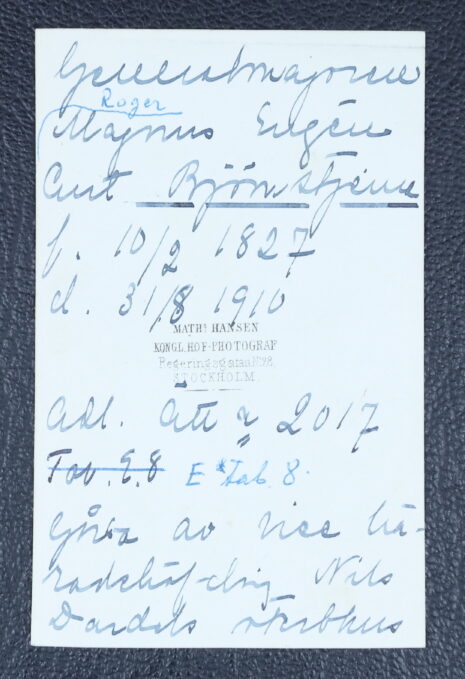 Generalmajoren
Roger
Magnus Eugéne
Curt Björnstjerna
f. 10/2 1827
d. 31/8 1910
MATHs HANSEN
KONGL. HOF-PHOTOGRAF
Regeringsgatan No 28.
STOCKHOLM.
Adl. Ätt n 2017
Tav. E.8 E Tab 8.
Gåva av vice hä-
radshöfding Nils
Dardels sterbhus